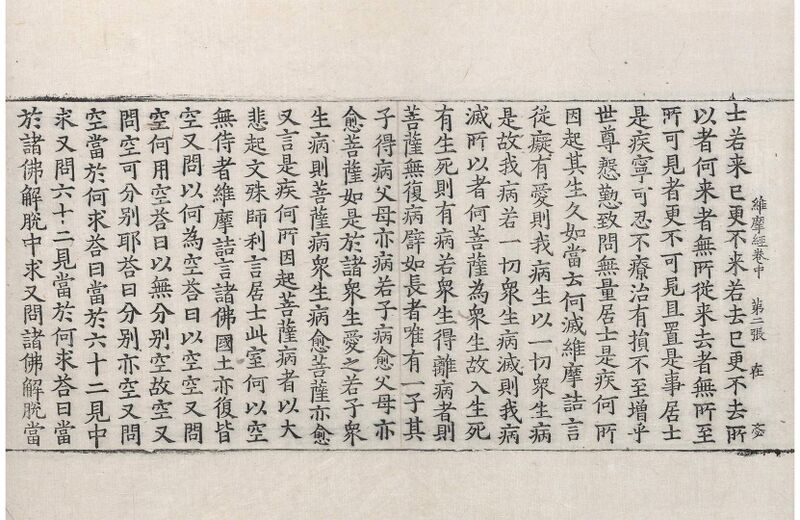 維摩經卷中 第二張 在
士若来已更不来若去已更不去所
以者何来者無所從来去者無所至
所可見者更不可見且置是事居士
是疾寧可忍不療治有損不至增乎
世尊慇懃致問無量居士是疾何所
因起其生久如當去何滅維摩詰言
從癡有愛則我病生以一切衆生病
是故我病若一切衆生病滅則我病
滅所以者何菩薩為衆生故入生死
有生死則有病若衆生得離病者則
菩薩無復病譬如長者唯有一子其
子得病父母亦病若子病愈父母亦
愈菩薩如是於諸衆生愛之若子衆
生病則菩薩病衆生病愈菩薩亦愈
又言是疾何所因起菩薩病者以大
悲起文殊師利言居士此室何以空
無侍者維摩詰言諸佛國土亦復皆
空又問以何為空荅曰以空空又問
空何用空荅曰以無分別故空又
問空可分別耶荅曰分別亦空又問
空當於何求荅曰當於六十二見中
求又問六十二見當於何求荅曰當
於諸佛解脫中求又問諸佛解脫當